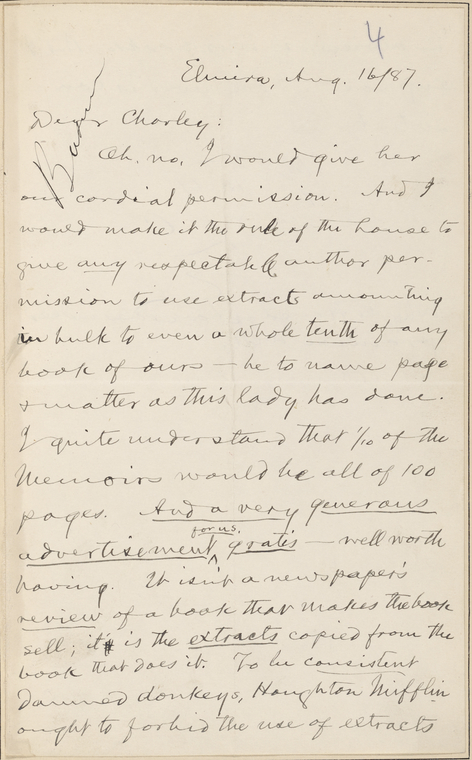 4
Elmira, Aug. 16/87.
Dear Charley:
Oh, no, I would give her
our cordial permission. And I
would make it the rule of the house to
give any respectable author per-
mission to use extracts amounting
in bulk to even a whole tenth of any
book of ours — he to name page
& matter as this lady has done.
I quite understand that 1/10 of the
Memoirs would be all of 100
pages. And a very generous
for us,
advertisement ^ gratis — well worth
having. It isn't a newspaper's
review of a book that makes the book
sell; it is the extracts copied from the
book that does it. To be consistent
damned donkeys, Houghton Mifflin
ought to forbid the use of extracts